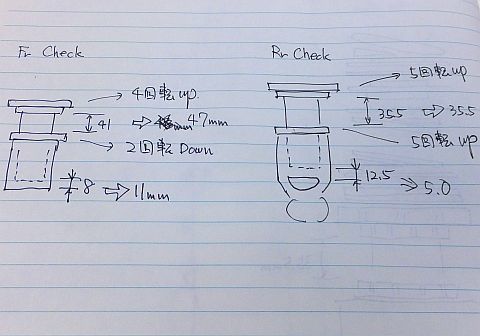 Fr Check
4回転up.
41 ⇒ mm 47mm
2回転 Down
8 ⇒ 11mm
Rr Check
5回転up
35.5 ⇒ 35.5
5回転up
12.5
⇒ 5.0